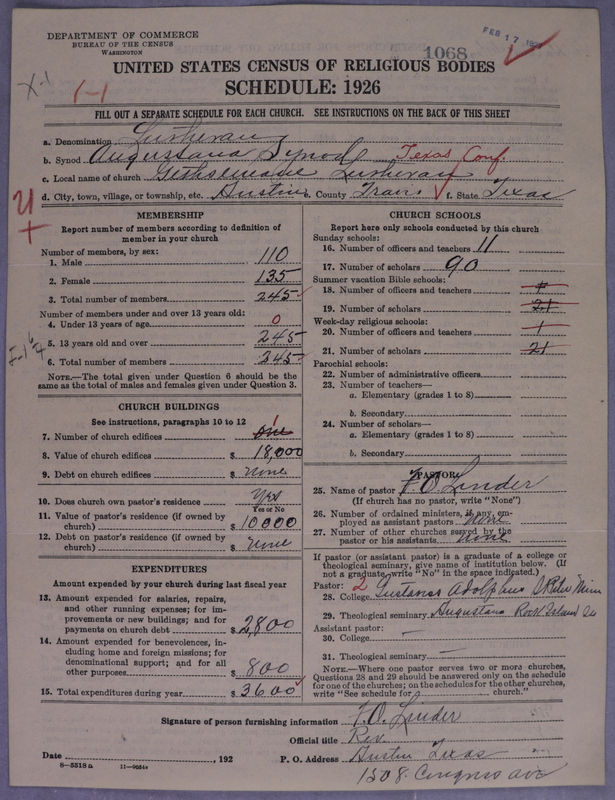 DEPARTMENT OF COMMERCE
BUREAU OF THE CENSUS
WASHINGTON
1068
FEB 17
X-1
1-1
UNITED STATES CENSUS OF RELIGIOUS BODIES
SCHEDULE: 1926
FILL OUT A SEPARATE SCHEDULE FOR EACH CHURCH. SEE INSTRUCTIONS ON THE BACK OF THIS SHEET
a. Denomination Lutheran
b. Synod Augustana Synod Texas Conf.
c. Local name of church Gethsemane Lutheran
d. City, town, village, or township, etc. Austin e. County Travis f. State Texas
MEMBERSHIP
Report number of members according to definition of
member in your church
Number of members, by sex:
1. Male 110
2. Female 135
3. Total number of members 245
Number of members under and over 13 years old:
4. Under 13 years of age 0
5. 13 years old and over 245
6. Total number of members 245
NOTE.—The total given under Question 6 should be the
same as the total of males and females given under Question 3.
CHURCH BUILDINGS
See instructions, paragraphs 10 to 12
7. Number of church edifices one 1
8. Value of church edifices $ 18,000
9. Debt on church edifices $ none
10. Does church own pastor's residence Yes
Yes or No
11. Value of pastor's residence (if owned by
church) $ 10000
12. Debt on pastor's residence (if owned by
church) $ none
EXPENDITURES
Amount expended by your church during last fiscal year
13. Amount expended for salaries, repairs,
and other running expenses; for im-
provements or new buildings; and for
payments on church debt $ 2800
14. Amount expended for benevolences, in-
cluding home and foreign missions; for
denominational support; and for all
other purposes $ 800
15. Total expenditures during year $ 3600
CHURCH SCHOOLS
Report here only schools conducted by this church
Sunday schools:
16. Number of officers and teachers 11
17. Number of scholars 90
Summer vacation Bible schools:
18. Number of officers and teachers 1
19. Number of scholars 21
Week-day religious schools:
20. Number of officers and teachers 1
21. Number of scholars 21
Parochial schools:
22. Number of administrative officers
23. Number of teachers—
a. Elementary (grades 1 to 8)
b. Secondary
24. Number of scholars—
a. Elementary (grades 1 to 8)
b. Secondary
PASTOR
25. Name of pastor F. O. Linder
(If church has no pastor, write "None")
26. Number of ordained ministers, if any, em-
ployed as assistant pastors none
27. Number of other churches served by the
pastor or his assistants none
If pastor (or assistant pastor) is a graduate of a college or
theological seminary, give name of institution below. (If
not a graduate, write "No" in the space indicated.)
Pastor: 2
28. College Gustavus Adolphus St Peter Minn
29. Theological seminary Augustana Rock Island Ill
Assistant pastor:
30. College —
31. Theological seminary —
NOTE.—Where one pastor serves two or more churches,
Questions 28 and 29 should be answered only on the schedule
for one of the churches; on the schedules for the other churches,
write "See schedule for church."
Signature of person furnishing information F. O. Linder
Official title Rev.
Date , 192 P. O. Address Austin Texas
8-5518a 1508 Congress ave